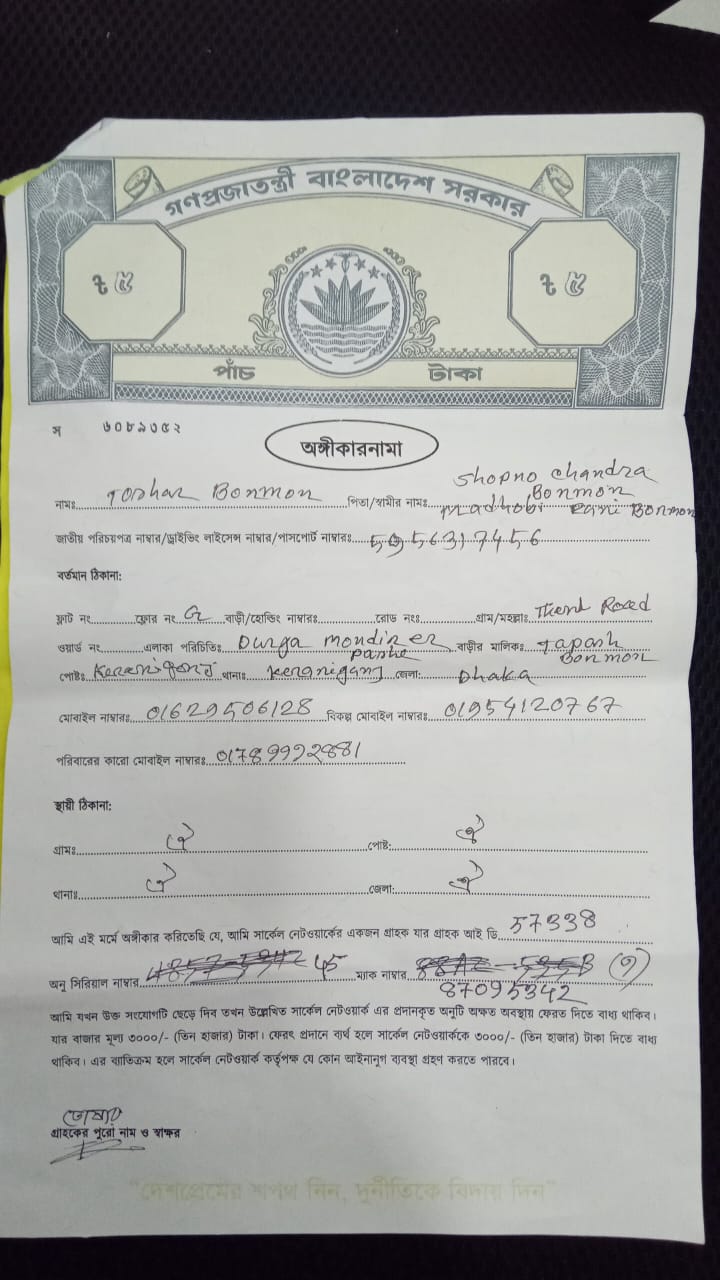 গণপ্রজাতন্ত্রী বাংলাদেশ সরকার
৳ ৫ ৳ ৫
পাঁচ টাকা
স ৬০৮৯৩৫২
অঙ্গীকারনামা
Shopno Chandra Bonmon
নামঃ Toshar Bonmon পিতা/স্বামীর নামঃ Madhobi Rani Bonmon
জাতীয় পরিচয়পত্র নাম্বার/ড্রাইভিং লাইসেন্স নাম্বার/পাসপোর্ট নাম্বারঃ
বর্তমান ঠিকানা:
ফ্লাট নং ফ্লোর নং বাড়ী/হোল্ডিং নাম্বারঃ রোড নংঃ গ্রাম/মহল্লাঃ Road
ওয়ার্ড নং এলাকা পরিচিতিঃ Durga mondirer pashe বাড়ীর মালিকঃ Tapash Bonmon
পোষ্টঃ Keranigonj থানাঃ Keranigang জেলা: Dhaka
মোবাইল নাম্বারঃ 01629506128 বিকল্প মোবাইল নাম্বারঃ 01954120767
পরিবারের কারো মোবাইল নাম্বারঃ
স্থায়ী ঠিকানা:
গ্রামঃ ঐ পোষ্ট: ঐ
থানাঃ ঐ জেলা: ঐ
আমি এই মর্মে অঙ্গীকার করিতেছি যে, আমি সার্কেল নেটওয়ার্কের একজন গ্রাহক যার গ্রাহক আই ডি 57338
অনু সিরিয়াল নাম্বার 45 ম্যাক নাম্বার
87095342
আমি যখন উক্ত সংযোগটি ছেড়ে দিব তখন উল্লেখিত সার্কেল নেটওয়ার্ক এর প্রদানকৃত অনুটি অক্ষত অবস্থায় ফেরত দিতে বাধ্য থাকিব।
যার বাজার মূল্য ৩০০০/- (তিন হাজার) টাকা। ফেরৎ প্রদানে ব্যর্থ হলে সার্কেল নেটওয়ার্ককে ৩০০০/- (তিন হাজার) টাকা দিতে বাধ্য
থাকিব। এর ব্যতিক্রম হলে সার্কেল নেটওয়ার্ক কর্তৃপক্ষ যে কোন আইনানুগ ব্যবস্থা গ্রহণ করতে পারবে।
তোষার
গ্রাহকের পুরো নাম ও স্বাক্ষর
"দেশপ্রেমের শপথ নিন, দুর্নীতিকে বিদায় দিন"